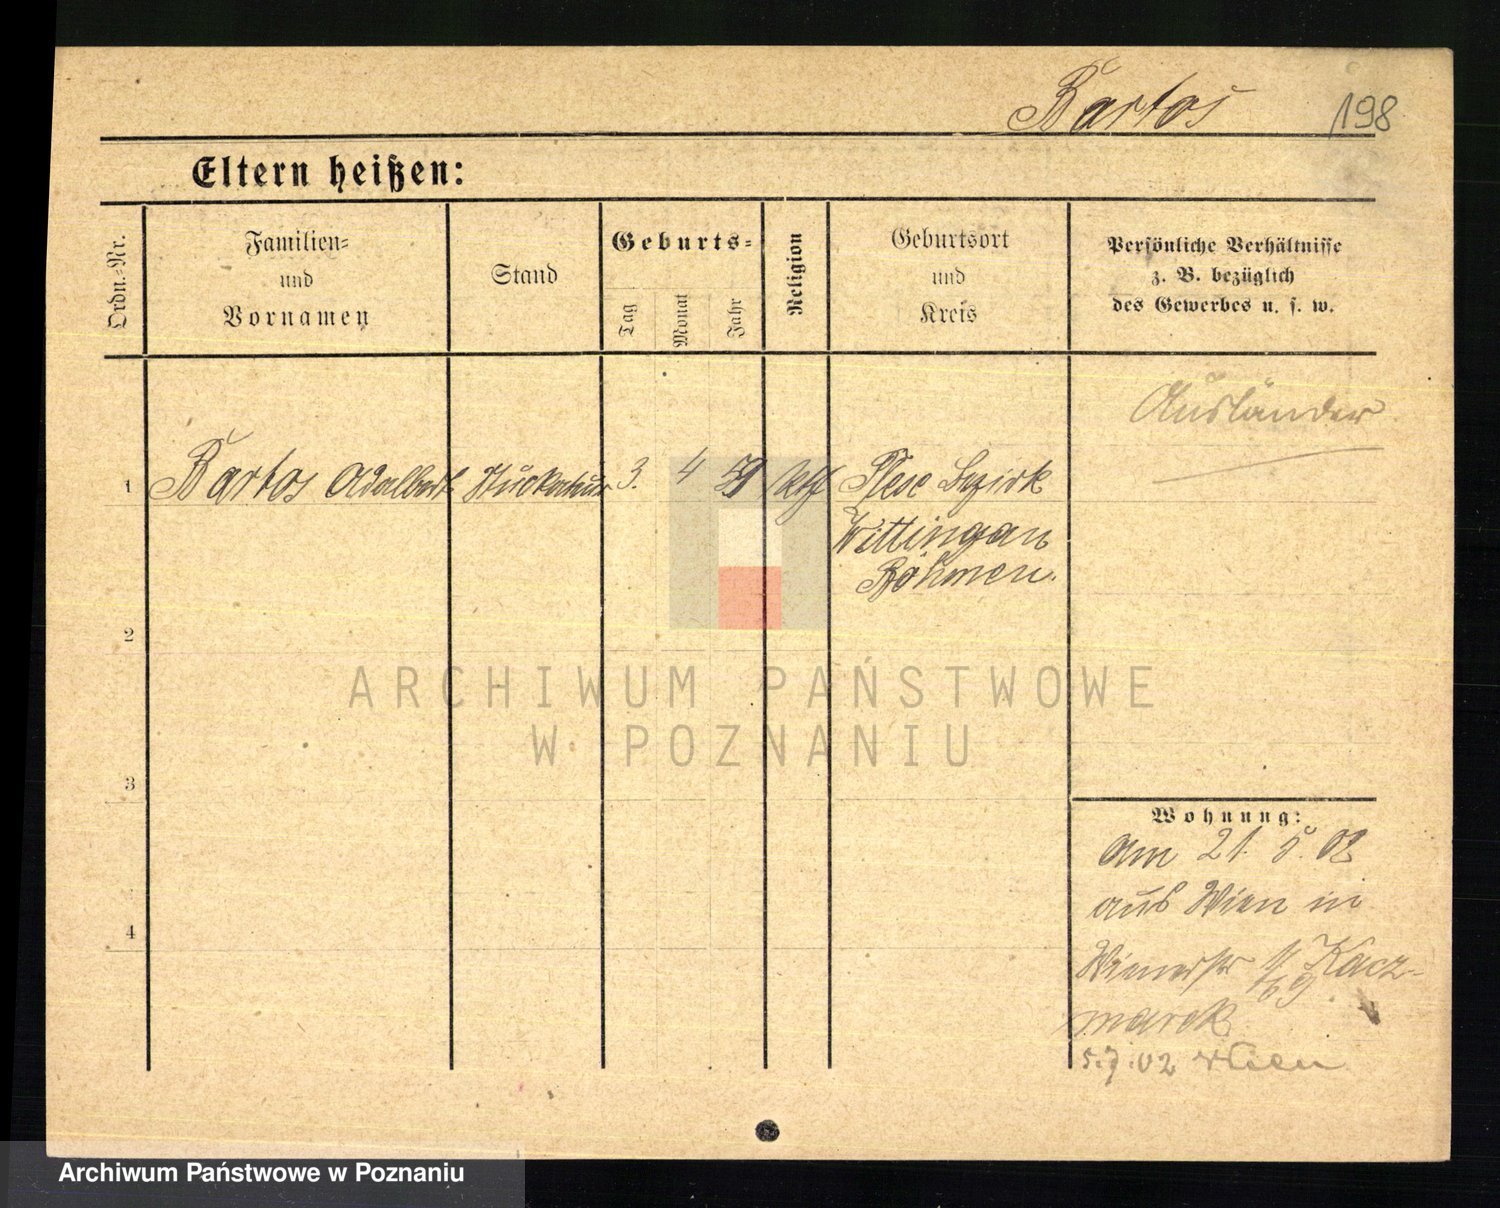 Bartos 198
Eltern heißen:
Ordn.-Nr.
Familien-
und
Vornamen
Stand
Geburts-
Tag
Monat
Jahr
Religion
Geburtsort
und
Kreis
Persönliche Verhältnisse
z. B. bezüglich
des Gewerbes u. s. w.
Ausländer
1 Bartos Adalbert Stuckateur 3. 4 59 kth Bezirk
Wittingau
Böhmen.
2
3
4
Wohnung:
Am 21. 5. 02
aus Wien in
Wienerstr Kacz-
marek
5.7.02 Wien
ARCHIWUM PAŃSTWOWE
W POZNANIU
Archiwum Państwowe w Poznaniu